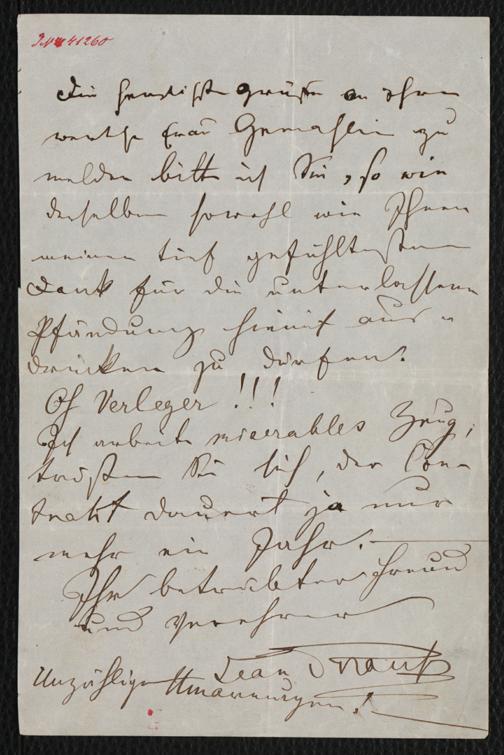 41260
Die herzlichsten Grüße an Ihre
werthe Frau Gemahlin zu
melden bitte ich Sie, so wie
derselben sowohl wie Ihnen
meinen tief gefühltesten
Dank für die unterlassene
Pfändung hiemit aus-
drücken zu dürfen.
Oh Verleger !!!
Ich arbeite miserables Zeug,
trösten Sie sich, der Con-
trakt dauert ja nur
mehr ein Jahr.
Ihr betrübter Freund
und Verehrer
Jean Strauß
Unzählige Umarmungen!